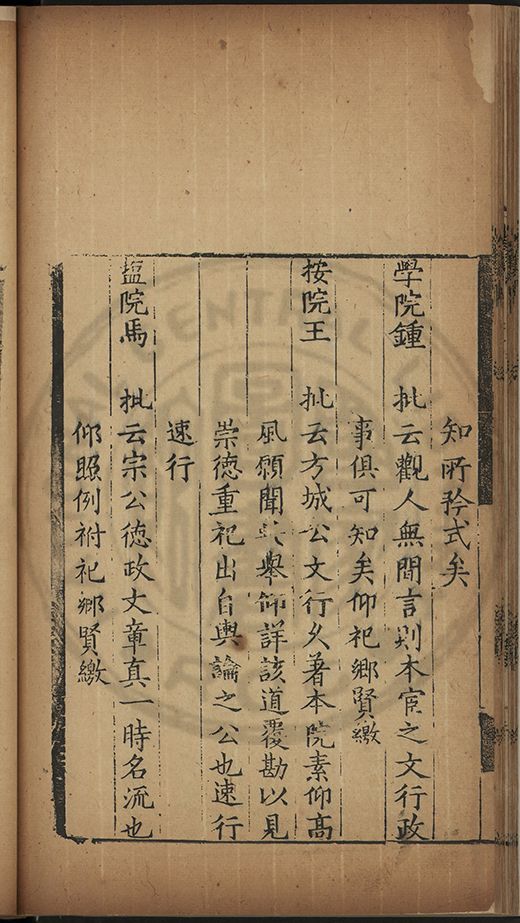 知所矜式矣
學院鍾　批云觀人無間言則本宦之文行政
事俱可知矣仰祀鄉賢繳
按院王　批云方城公文行乆著本院素仰高
風願聞其舉仰詳該道覆勘以見
崇德重祀出自輿論之公也速行
速行
塩院馬　批云宗公德政文章真一時名流也
仰照例祔祀鄉賢繳